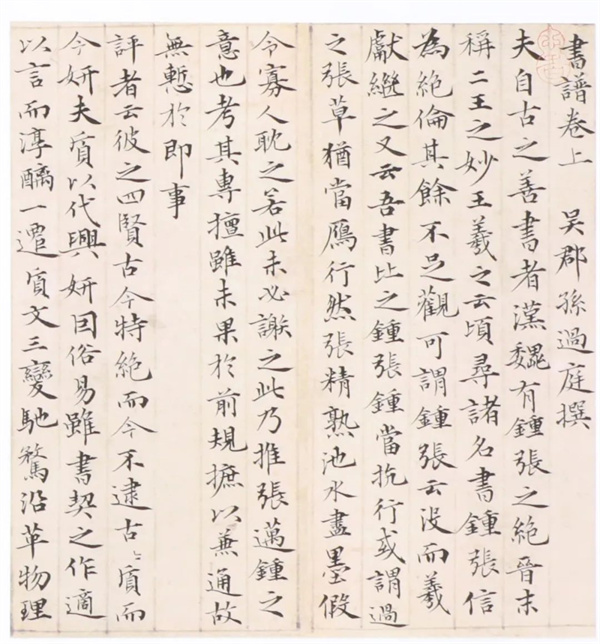 書譜卷上 吳郡孫過庭撰
夫自古之善書者漢魏有鍾張之絕晉末
稱二王之妙王羲之云頃尋諸名書鍾張信
為絕倫其餘不足觀可謂鍾張云沒而羲
獻繼之又云吾書比之鍾張鍾當抗行或謂過
之張草猶當鴈行然張精熟池水盡墨假
令寡人耽之若此未必謝之此乃推張邁鍾之
意也考其專擅雖未果於前規摭以兼通故
無慙於即事
評者云彼之四賢古今特絕而今不逮古〻質而
今妍夫質以代興妍因俗易雖書契之作適
以言而淳醨一遷質文三變馳騖沿革物理